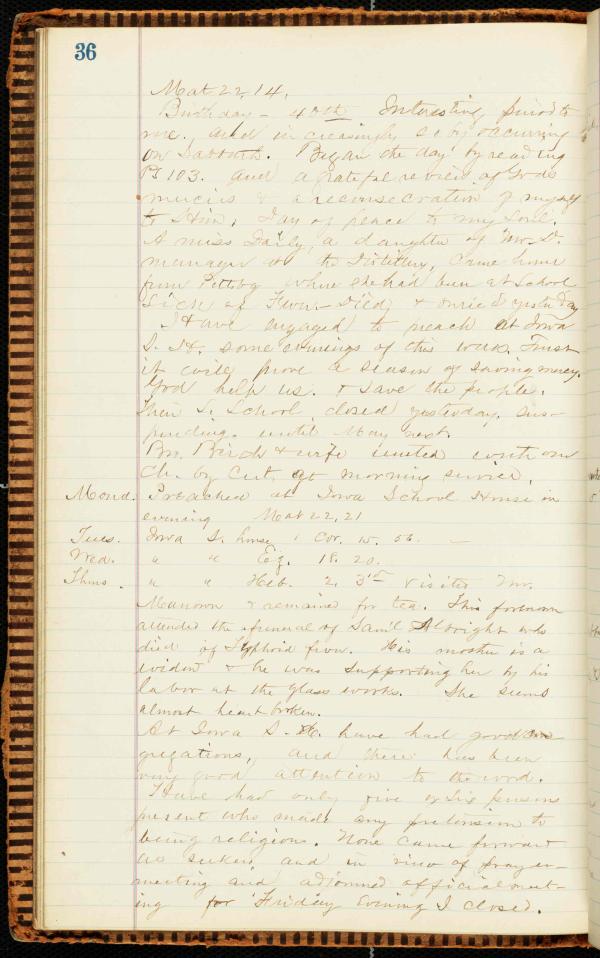 36
Mat 22, 14.
Birthday - 40th Interesting period to
me. and increasingly so by occurring
on Sabbath. Began the day by reading
Ps 103. and a grateful review of Gods
mercies & a reconsecration of myself
to Him. Day of peace to my Soul.
A miss Daily, a daughter of Mr. D.
manager at the Distillery, came home
from Pittsbg where she had been at School
Sick of Fever - Died & buried yesterday
I Have engaged to preach at Iowa
S. H. some evenings of this week. Trust
it will prove a season of saving mercy.
God help us. & save the people.
Their S. School closed yesterday. sus-
pending. until May next.
Bro. Birch & wife united with our
Ch. by Cert. at morning service.
Mond. Preached at Iowa School House in
evening Mat 22, 21
Tues. Iowa S. house 1 Cor. 15. 56. —
Wed. " " Ez. 18. 20.
Thurs. " " Heb. 2. 3rd visited Mr.
& remained for tea. This forenoon
attended the funeral of Sam'l Albright who
died of Typhoid fever. His mother is a
widow & he was supporting her by his
labor at the glass works. She seems
almost heart broken.
At Iowa S. H. have had good con-
gregations, and there has been
very good attention to the word.
Have had only five or six persons
present who made any pretension to
being religious. None came forward
as seekers and in view of prayer-
meeting and adjourned official meet-
ing for Friday Evening I closed.